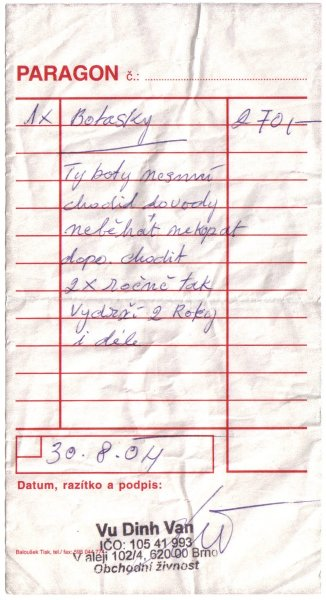 PARAGON č.:
1x Botasky 270,-
Ty boty nesmí
chodid do vody
neběhát nekopat
dopo. chodit
2x ročně tak
Vydrží 2 Roky
i déle
30.8.04
Datum, razítko a podpis:
Vu Dinh Van
IČO: 105 41 993
V aleji 102/4, 620 00 Brno
Obchodní živnost
Baloušek Tisk, tel./ fax: